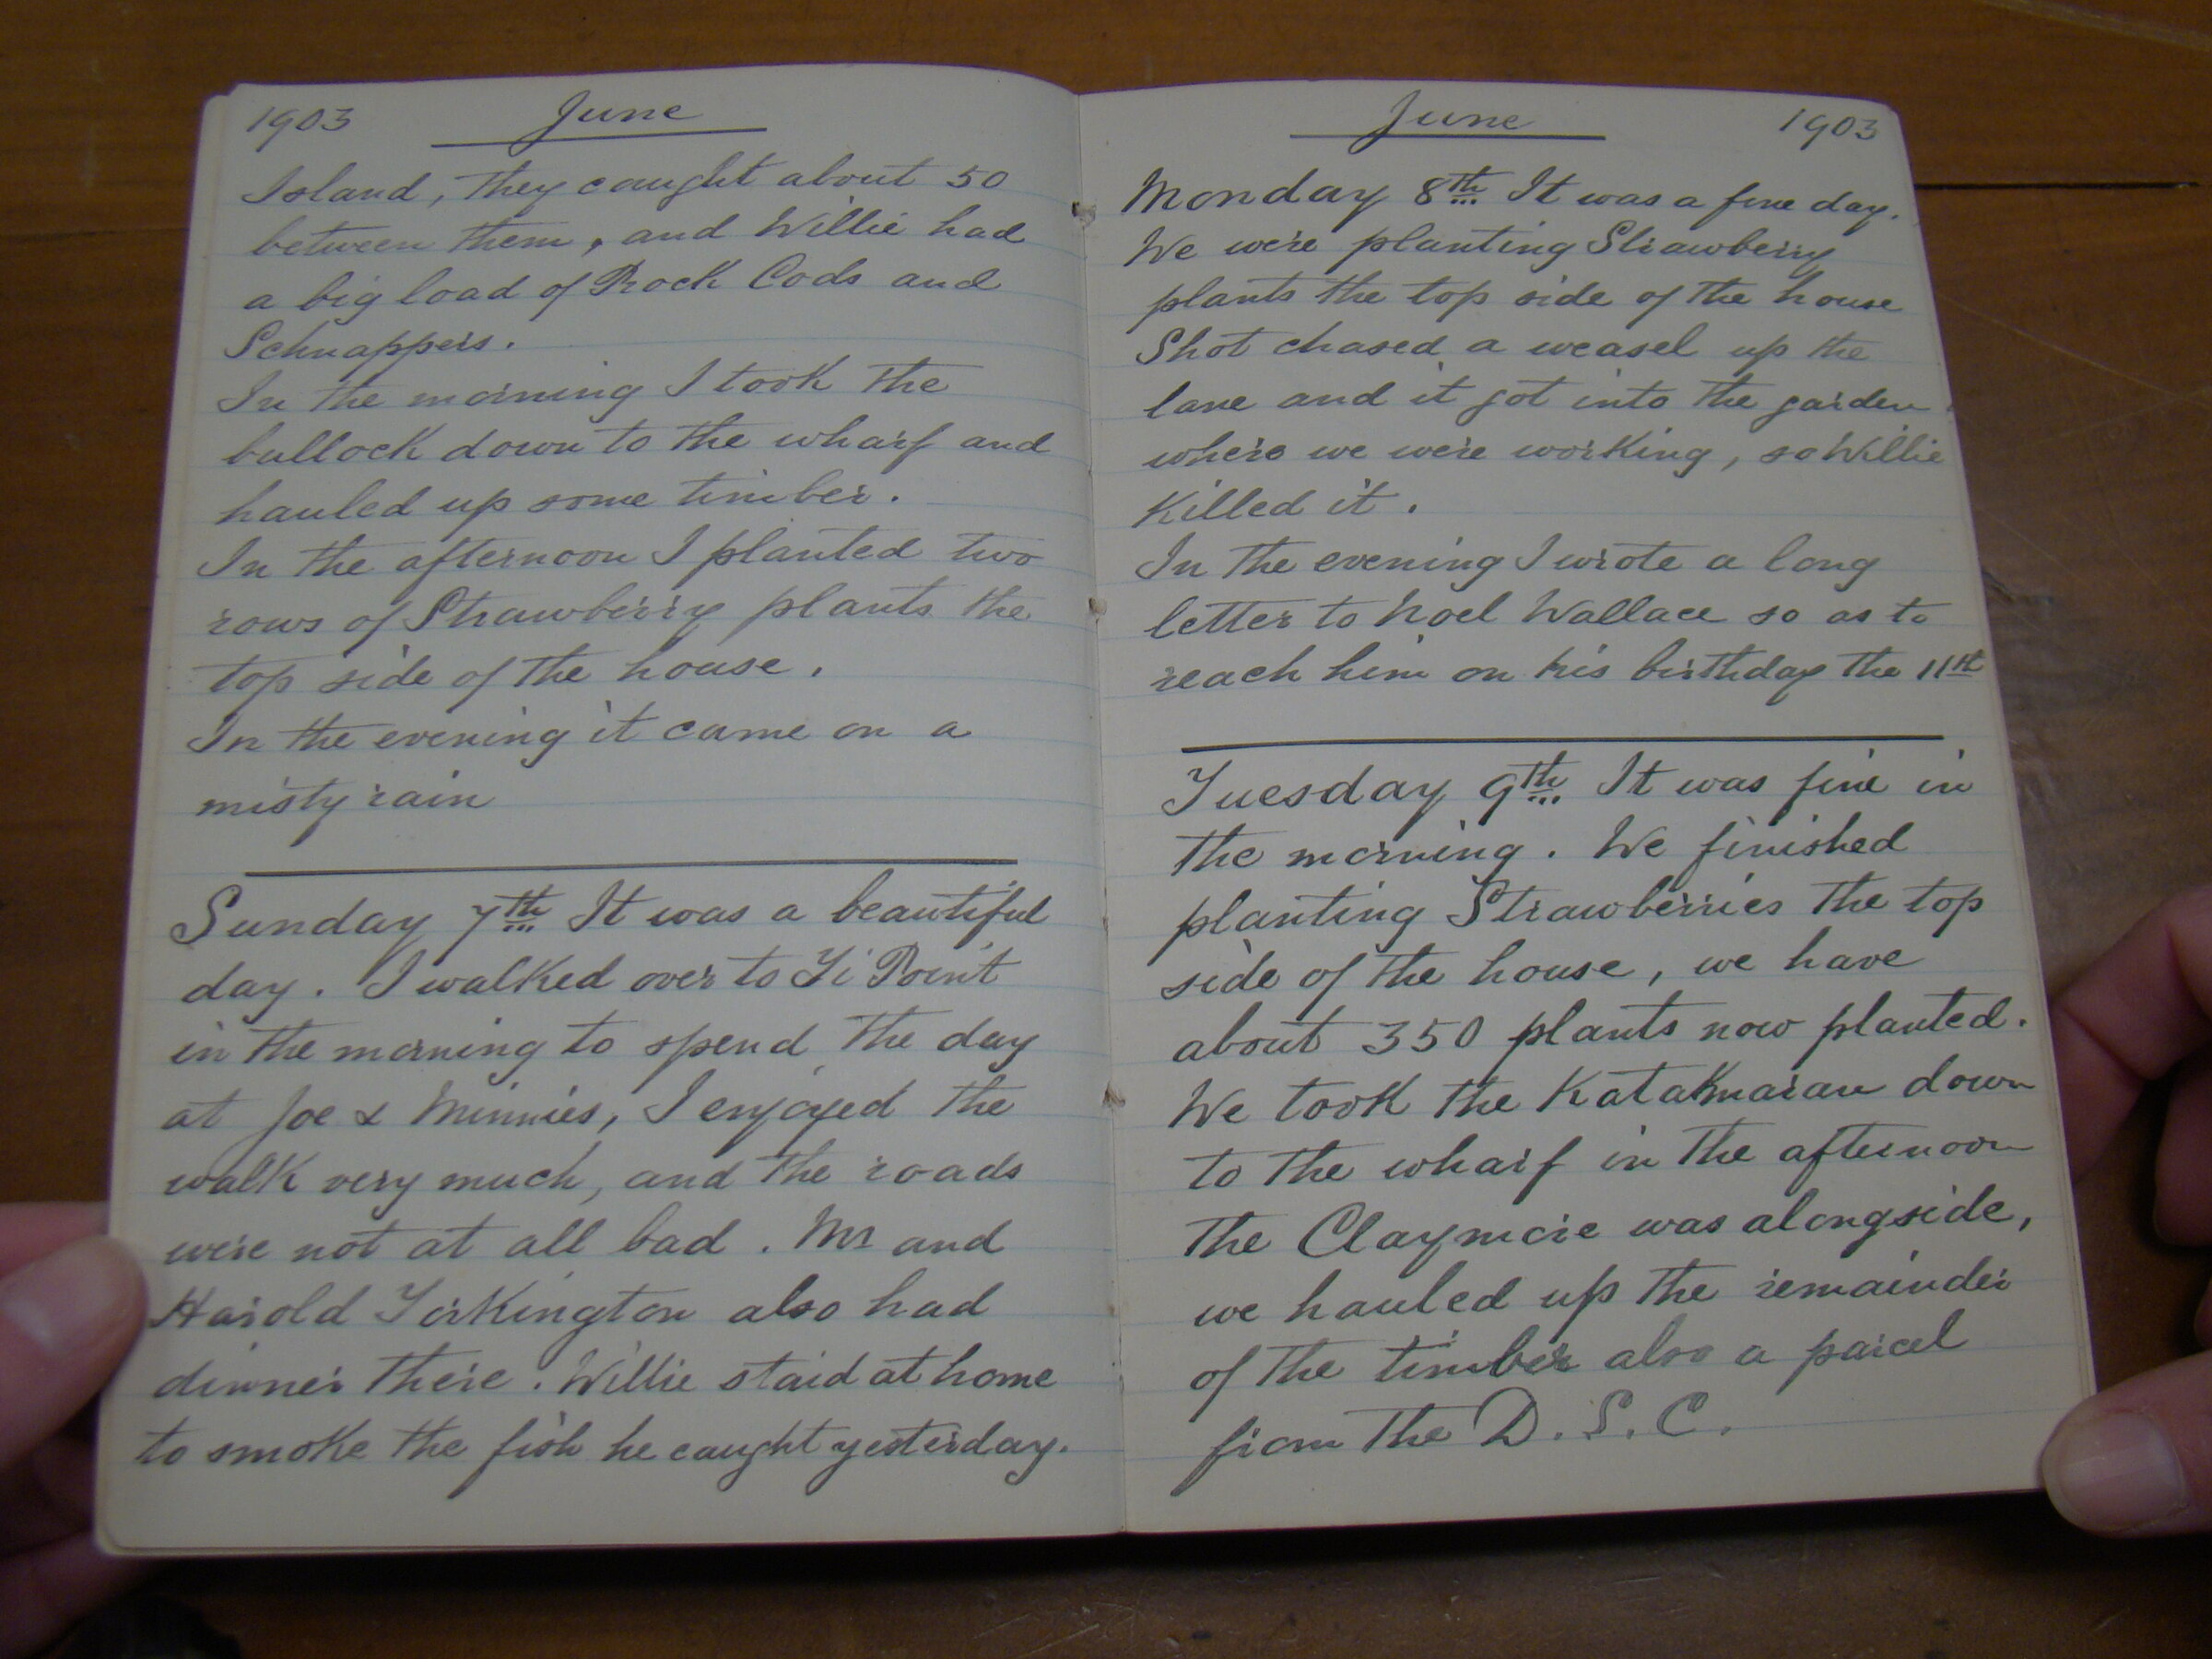 1903 June
Island, they caught about 50
between them, and Willie had
a big load of Rock Cods and
Schnappers.
In the morning I took the
bullock down to the wharf and
hauled up some timber.
In the afternoon I planted two
rows of Strawberry plants the
top side of the house.
In the evening it came on a
misty rain
Sunday 7th It was a beautiful
day. I walked over to Ti Point
in the morning to spend the day
at Joe & Minnies, I enjoyed the
walk very much, and the roads
were not at all bad. Mr and
Harold Torkington also had
dinner there. Willie staid at home
to smoke the fish he caught yesterday.
June 1903
Monday 8th It was a fine day.
We were planting Strawberry
plants the top side of the house
Shot chased a weasel up the
lane and it got into the garden
where we were working, so Willie
Killed it.
In the evening I wrote a long
letter to Noel Wallace so as to
reach him on his birthday the 11th
Tuesday 9th It was fine in
the morning. We finished
planting Strawberries the top
side of the house, we have
about 350 plants now planted.
We took the Katakmaran down
to the wharf in the afternoon
the Claymore was alongside,
we hauled up the remainder
of the timber also a parcel
from the D.S.C.